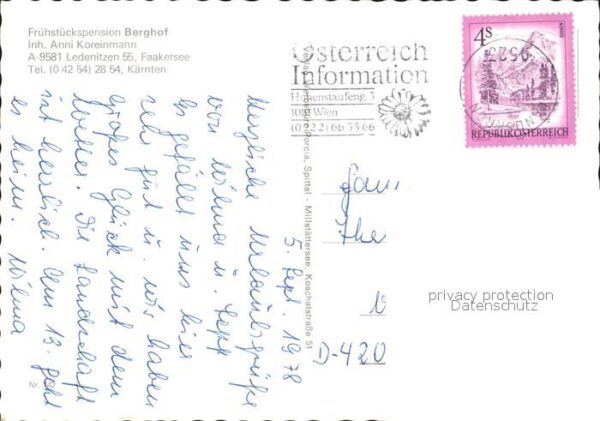 Frühstückspension Berghof
Inh. Anni Koreinmann
A-9581 Ledenitzen 55, Faakersee
Tel. (0 42 54) 28 54, Kärnten
Österreich
Information
Hohenstaufeng. 3
1010 Wien
(0222) 66 35 66
4S
REPUBLIK ÖSTERREICH
5. Sept. 1978
Herzliche Urlaubsgrüße
von Wilma u. Sepp
Es gefällt uns hier
sehr gut u. wir haben
großes Glück mit dem
Wetter. Die Landschaft
ist herrlich. Am 13. geht
es heim. Wilma
Porcia, Spittal - Millstättersee, Koschatstraße 51
Fam.
D-420
privacy protection
Datenschutz
Nr.